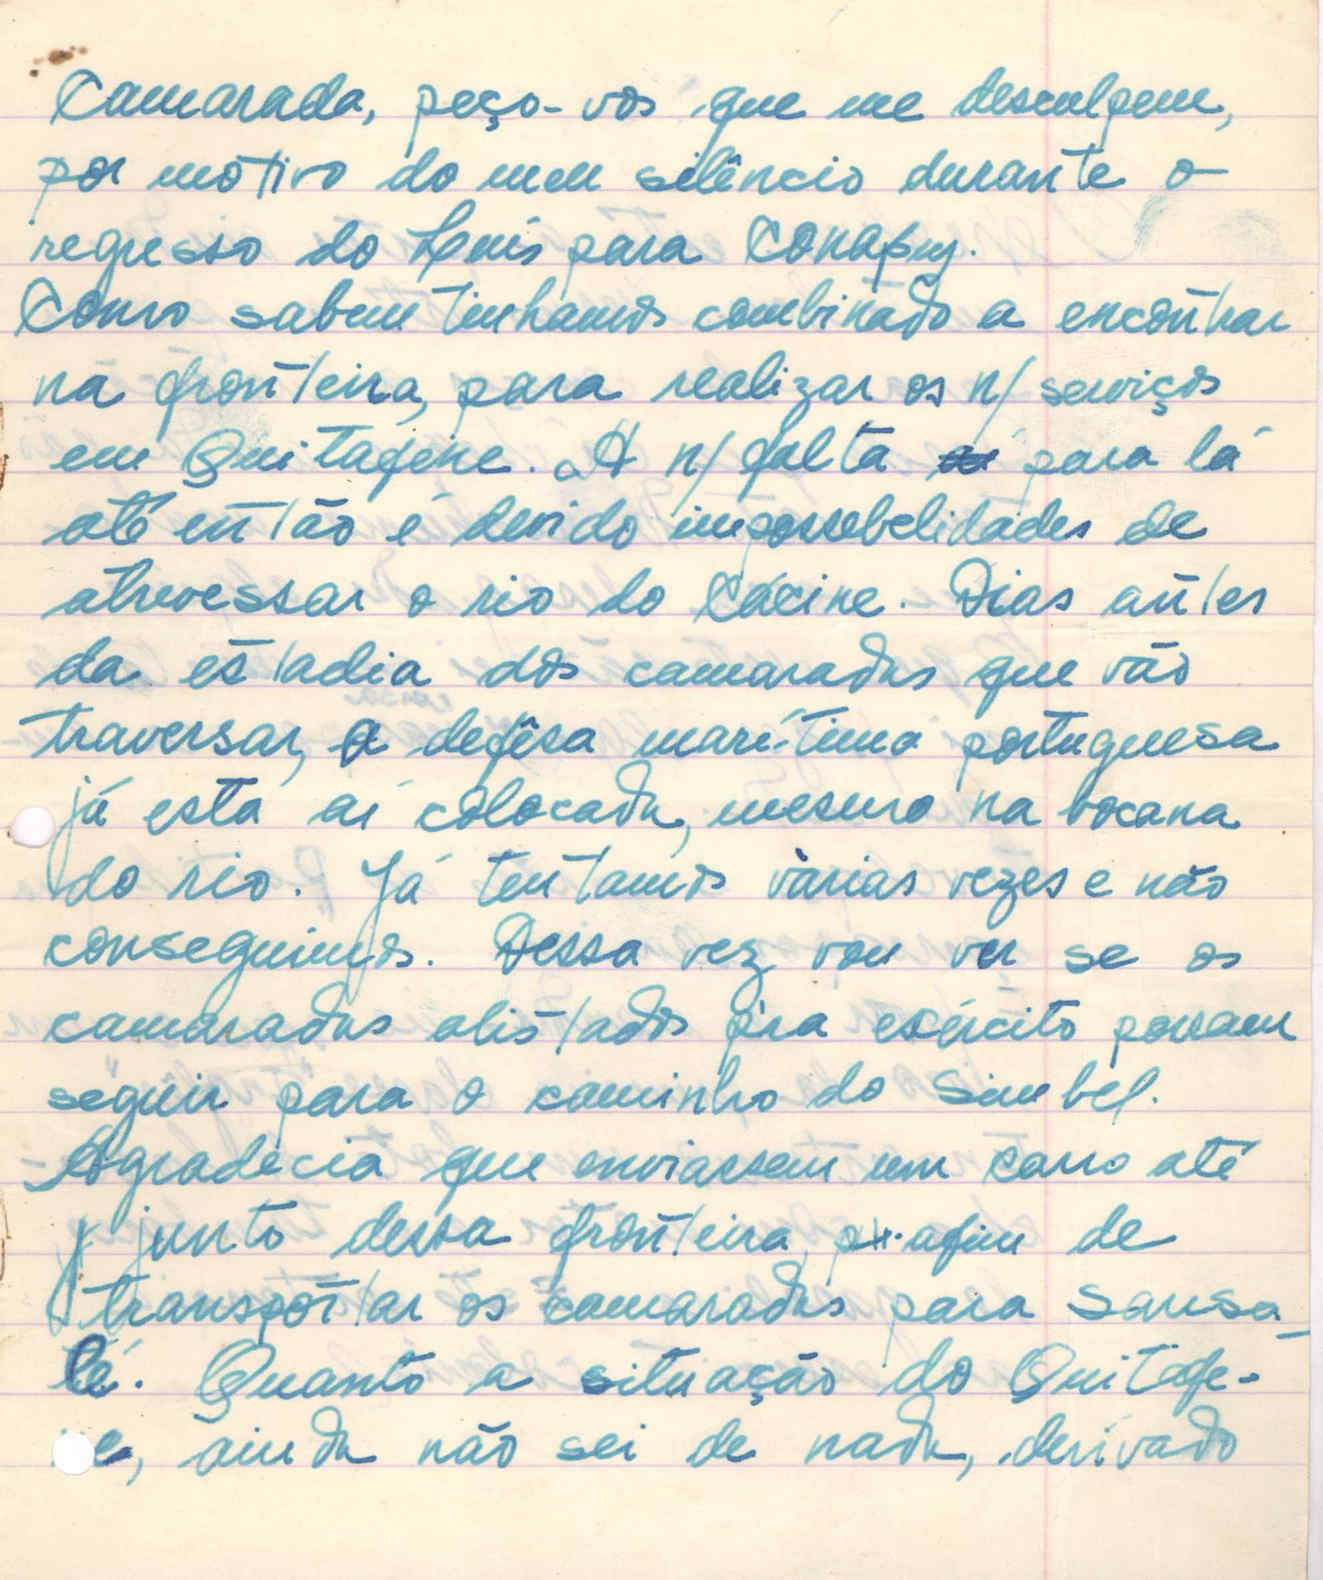 Camarada, peço-vos que me desculpem,
por motivo do meu silêncio durante o
regresso do Luís para Conakry.
Como sabem tinhamos combinado a encontrar
na fronteira, para realizar os n/ serviços
em Quitafine. A n/ falta para lá
até então é devido impossebelidades de
atrevessar o rio do Cácine. Dias antes
da estadia dos camaradas que vão
traversar, a defêsa marítima portuguesa
já está aí colocada, mesmo na bocana
do rio. Já tentamos várias vezes e não
conseguimos. Dessa vez vou ver se os
camaradas alistados p'ra exército possam
seguir para o caminho do Simbel.
Agradecia que enviassem um carro até
junto dessa fronteira, afim de
transportar os camaradas para Sansa
lé. Quanto a situação do Quitafi-
ne, ainda não sei de nada, derivado